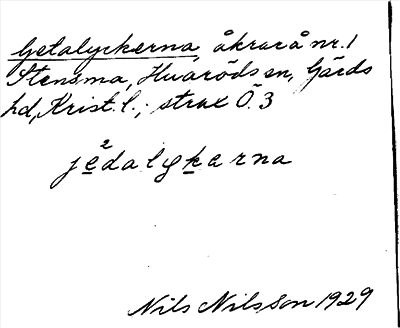 Getalyckerna, åkrar å nr. 1
Stensma, Hvaröds sn, Gärds
hd, Krist. l.; strax Ö. 3
je²dalykarna
Nils Nilsson 1929